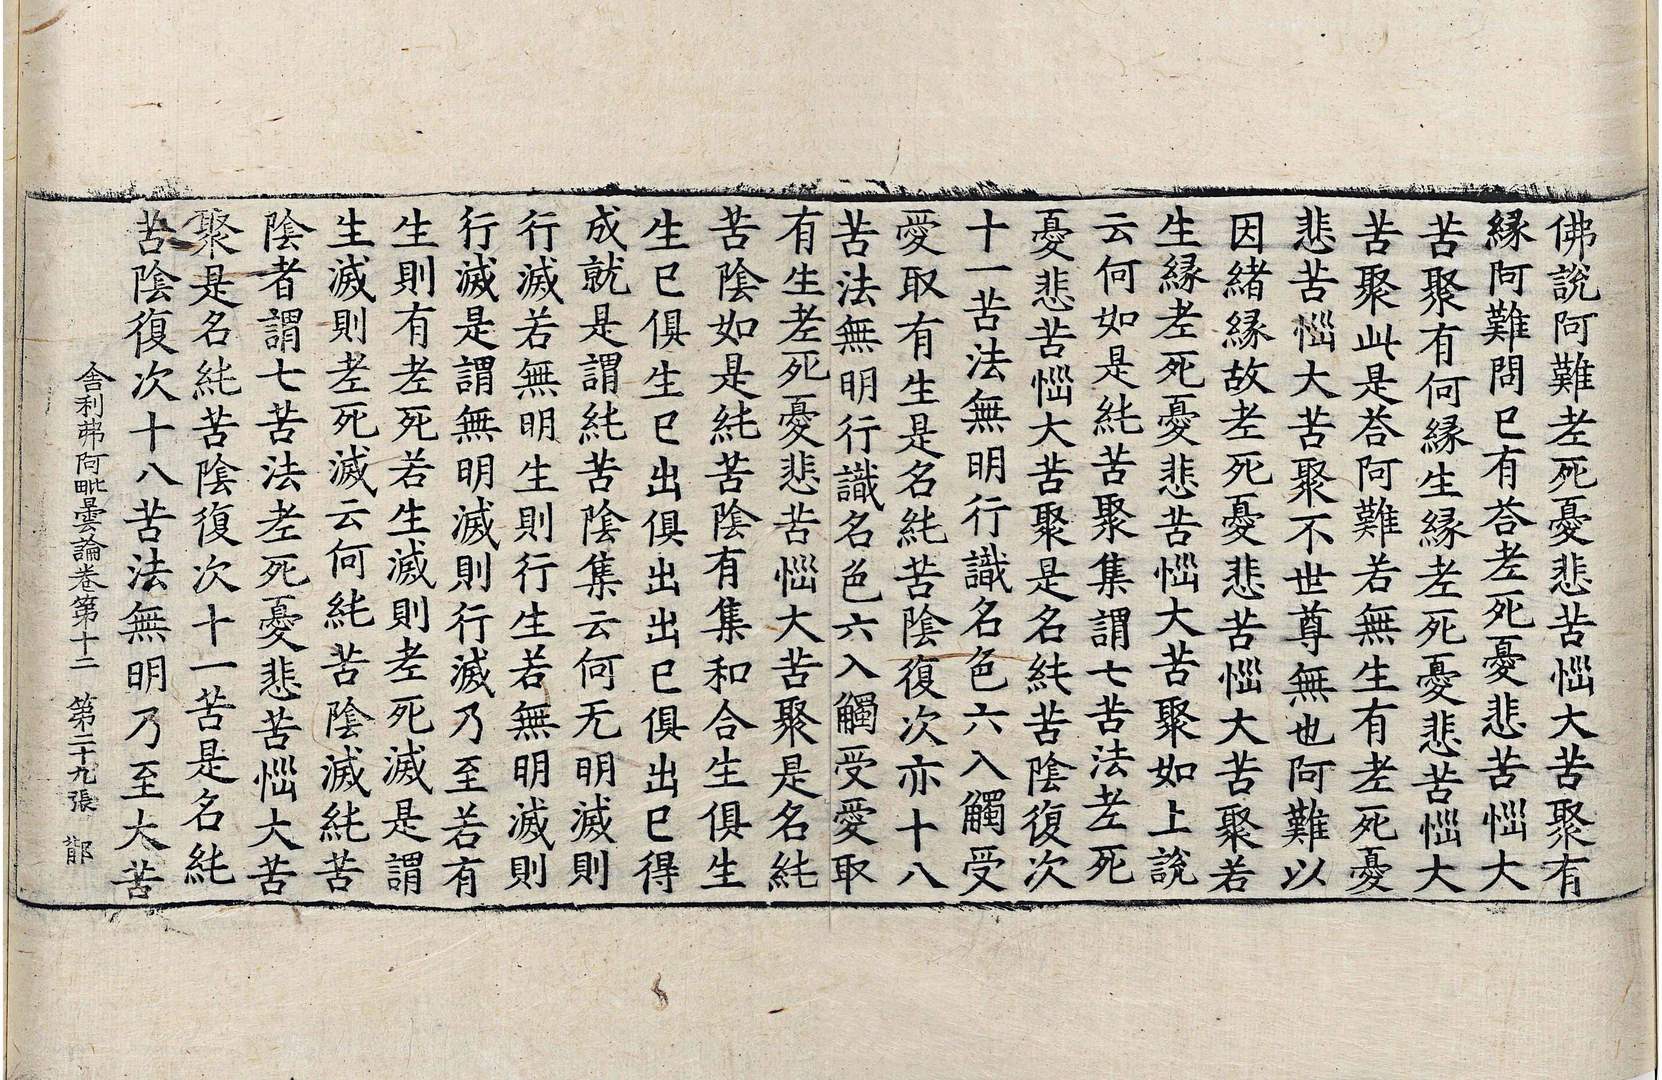 佛說阿難老死憂悲苦惱大苦聚有
緣阿難問已有荅老死憂悲苦惱大
苦聚有何緣生緣老死憂悲苦惱大
苦聚此是荅阿難若無生有老死憂
悲苦惱大苦聚不世尊無也阿難以
因緒緣故老死憂悲苦惱大苦聚若
生緣老死憂悲苦惱大苦聚如上說
云何如是純苦聚集謂七苦法老死
憂悲苦惱大苦聚是名純苦陰復次
十一苦法無明行識名色六入觸受
愛取有生是名純苦陰復次亦十八
苦法無明行識名色六入觸受愛取
有生老死憂悲苦惱大苦聚是名純
苦陰如是純苦陰有集和合生俱生
生已俱生已出俱出出已俱出已得
成就是謂純苦陰集云何无明滅則
行滅若無明生則行生若無明滅則
行滅是謂無明滅則行滅乃至若有
生則有老死若生滅則老死滅是謂
生滅則老死滅云何純苦陰滅純苦
陰者謂七苦法老死憂悲苦惱大苦
聚是名純苦陰復次十一苦是名純
苦陰復次十八苦法無明乃至大苦
舍利弗阿毗曇論卷第十二 第二十九張